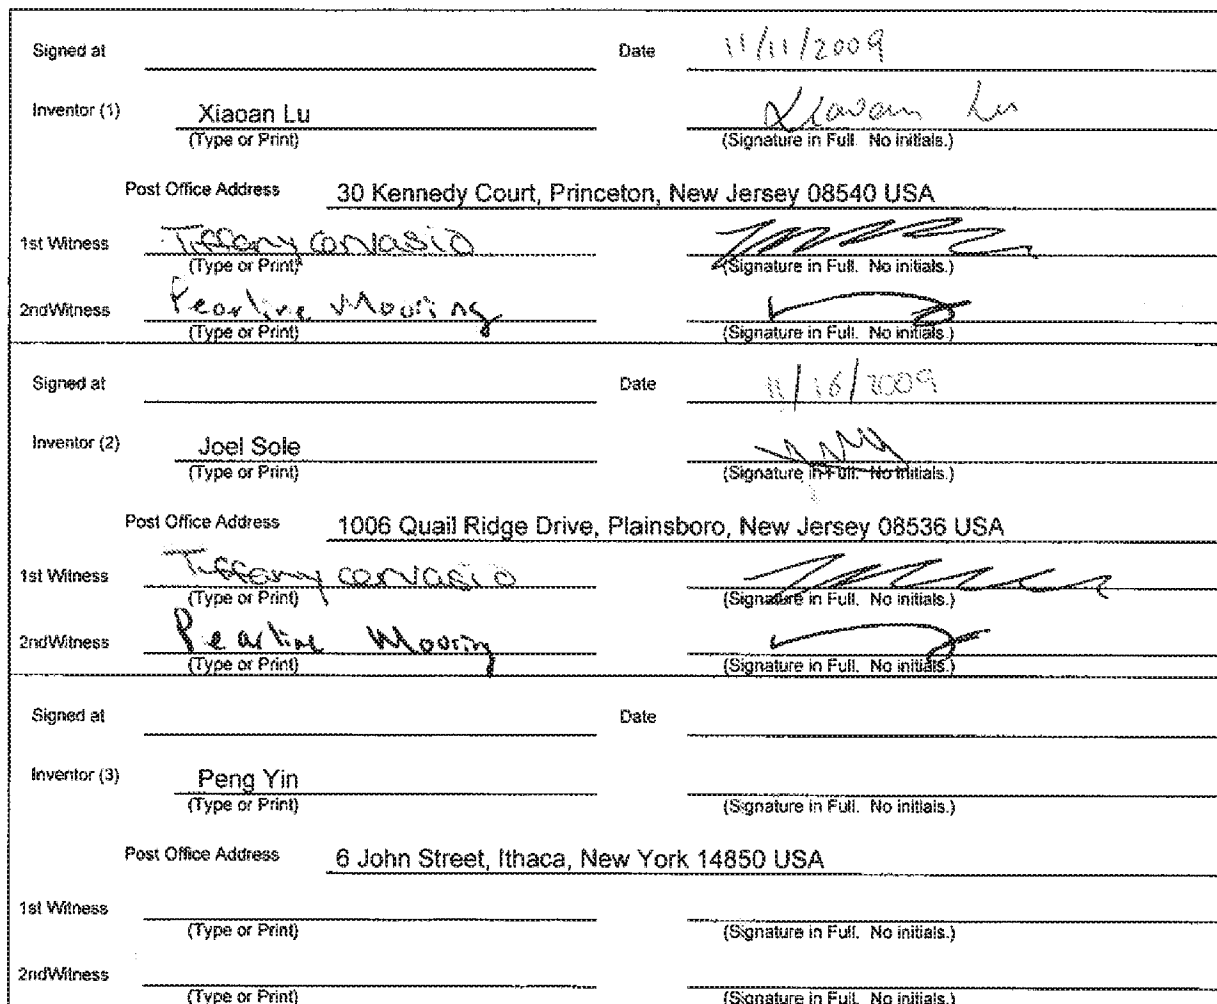 Signed at Date 11/11/2009
Inventor (1) Xiaoan Lu Xiaoan Lu
(Type or Print) (Signature in Full. No initials.)
Post Office Address 30 Kennedy Court, Princeton, New Jersey 08540 USA
1st Witness Tiffany
(Type or Print) (Signature in Full. No initials.)
2ndWitness Pearline Mooring
(Type or Print) (Signature in Full. No initials.)
Signed at Date 11/16/2009
Inventor (2) Joel Sole
(Type or Print) (Signature in Full. No initials.)
Post Office Address 1006 Quail Ridge Drive, Plainsboro, New Jersey 08536 USA
1st Witness Tiffany
(Type or Print) (Signature in Full. No initials.)
2ndWitness Pearline Mooring
(Type or Print) (Signature in Full. No initials.)
Signed at Date
Inventor (3) Peng Yin
(Type or Print) (Signature in Full. No initials.)
Post Office Address 6 John Street, Ithaca, New York 14850 USA
1st Witness
(Type or Print) (Signature in Full. No initials.)
2ndWitness
(Type or Print) (Signature in Full. No initials.)